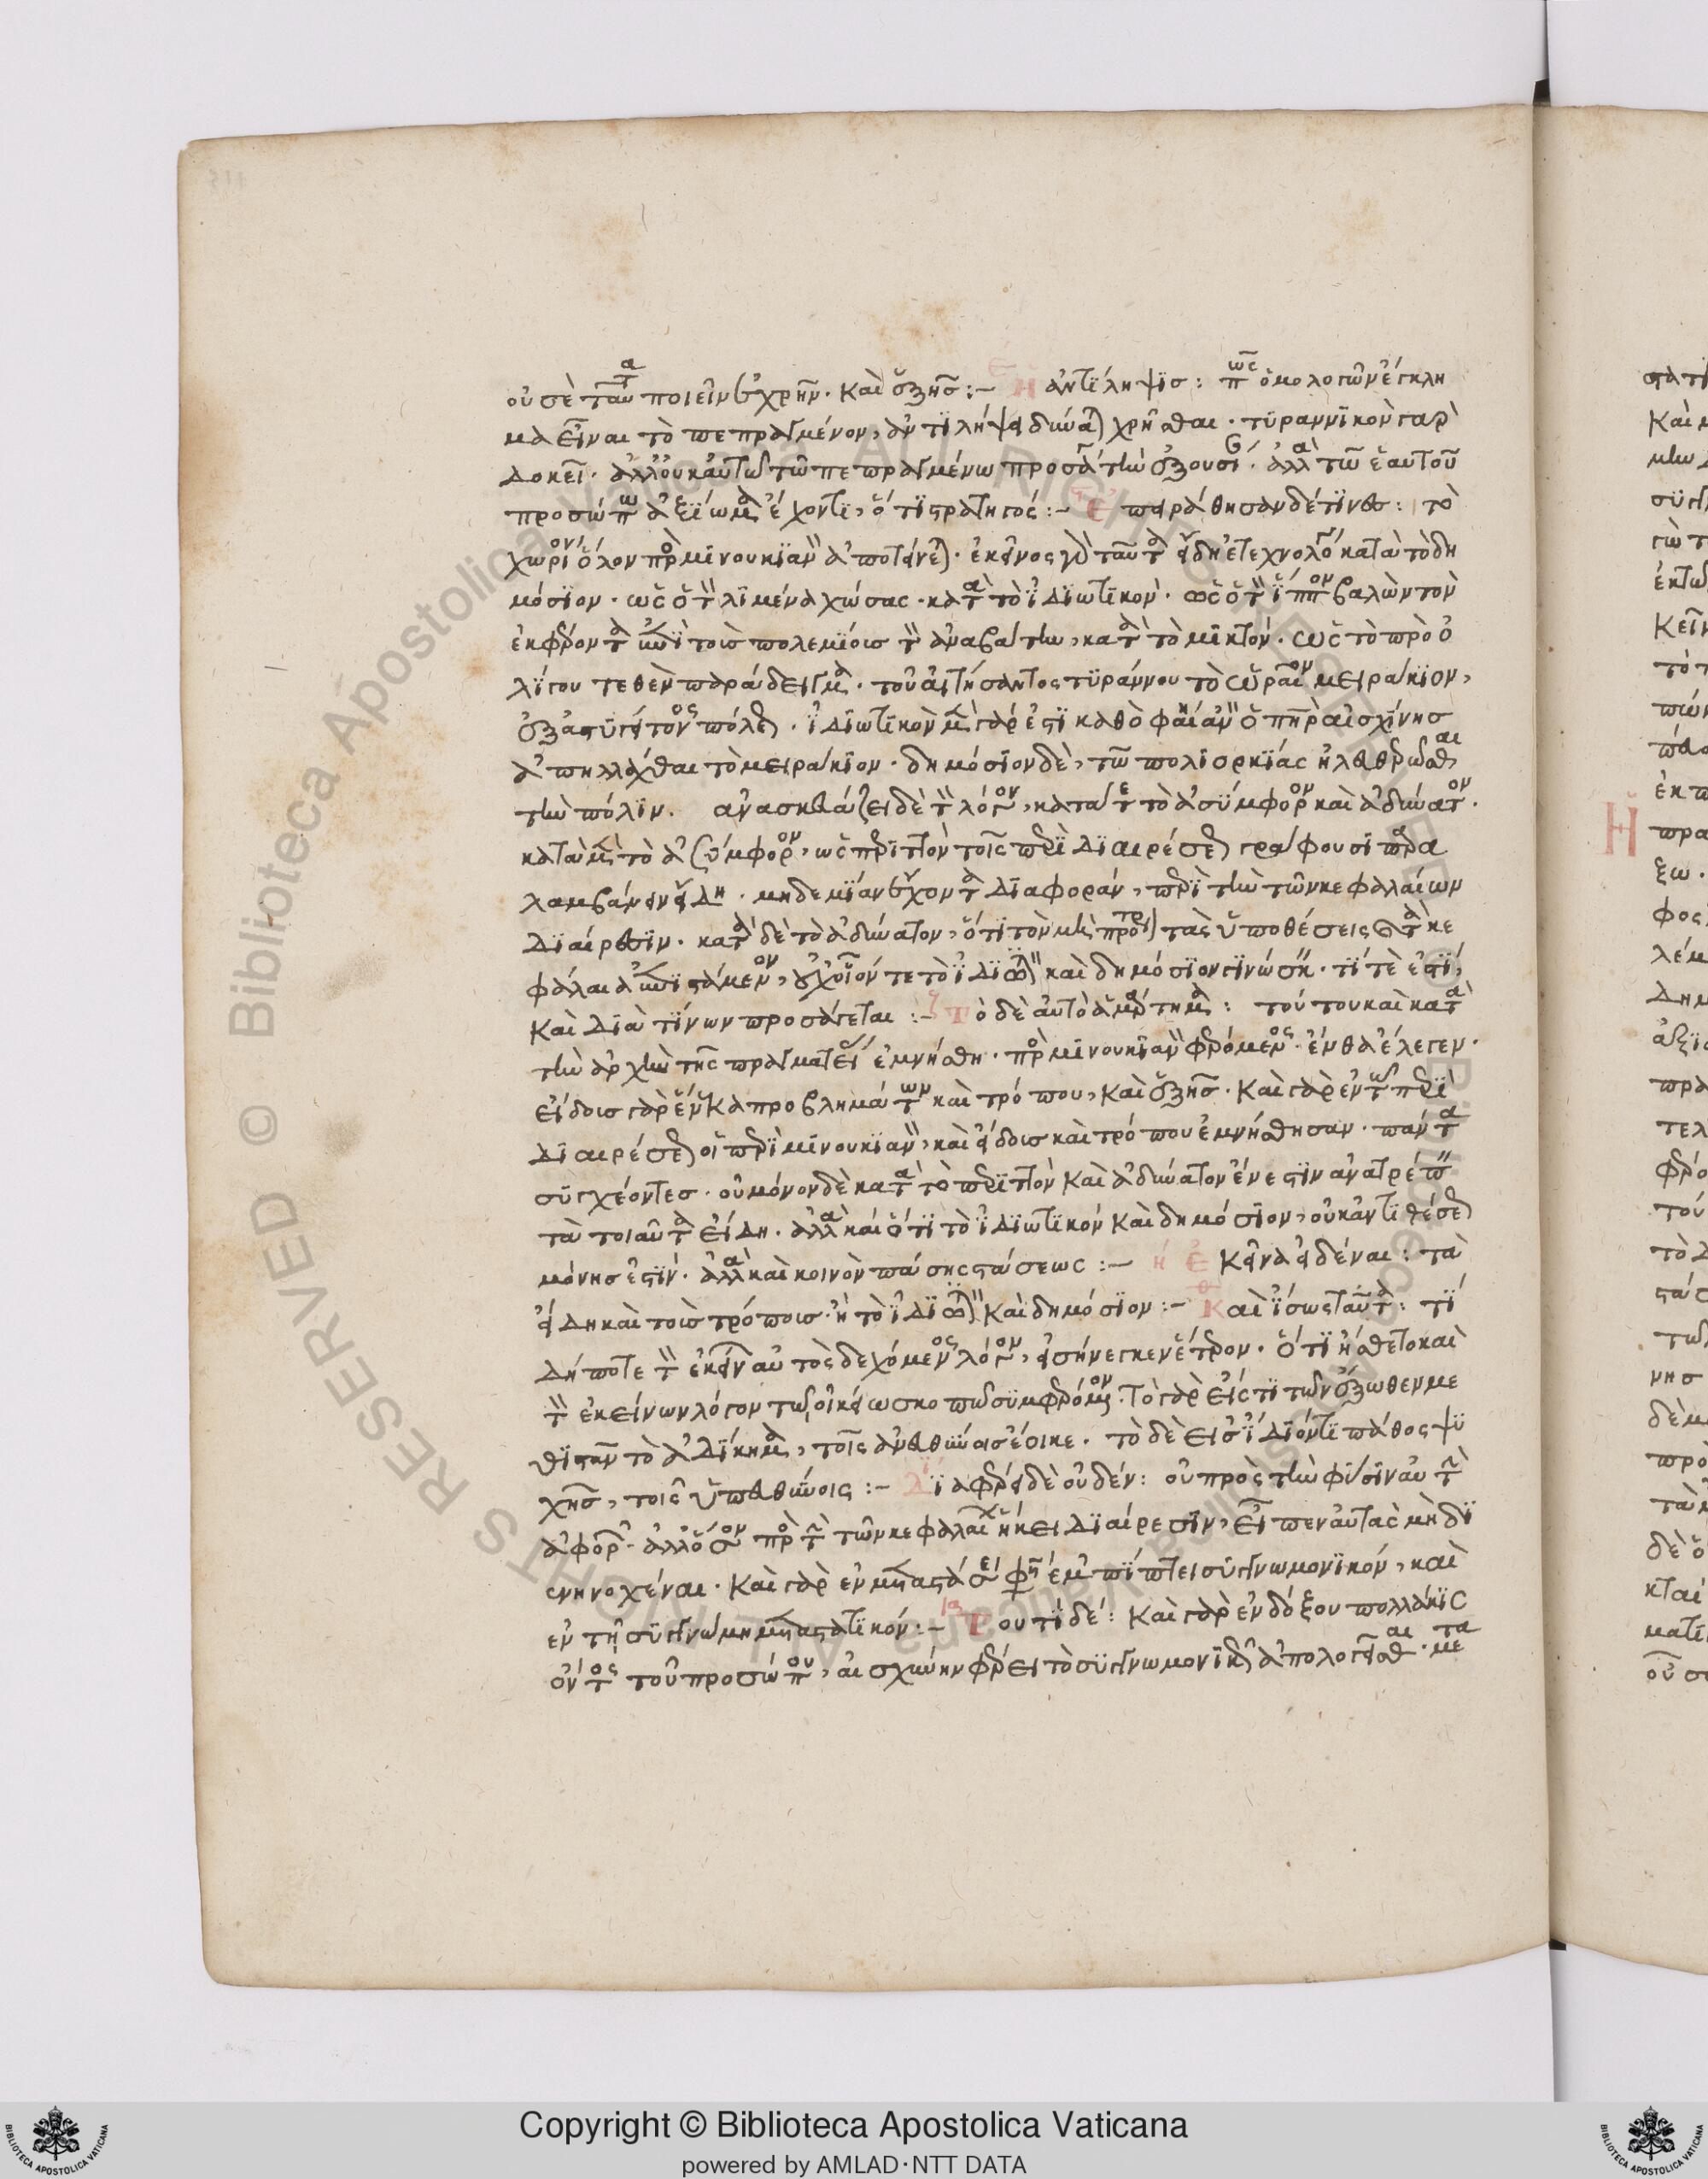 οὐ σὲ ταῦτα ποιεῖν οὐ χρῆν· καὶ ἑξῆς:– Ἡ ἀντίληψις: πῶς ὁμολογῶν ἔγκλη
μα εἶναι τὸ πεπραγμένον, ἀντιλήψει δύναται χρῆσθαι· τυραννικὸν γὰρ
δοκεῖ· ἀλλ' οὐκ αὐτῶ τῶ πεπραγμένω προσάπτει τὴν ἐξουσίαν· ἀλλὰ τῶ ἑαυτοῦ
προσώπω ἀξίωμα ἔχοντι, ὅτι στρατηγός:– παράθησαν δέ τινες: τὸ
χωρίον ὅλον πρὸς μινουκιανὸν ἀποτείνεται· ἐκεῖνος γὰρ ταῦτα εἴδη ἐτεχνολόγει κατὰ τὸ δη
μόσιον· ὡς ὁ τὸν λιμένα χώσας· κατὰ τὸ ἰδιωτικόν· ὡς ὁ τὸν ἵππον βαλὼν τὸν
ἐκφέροντα ἐπὶ τοὺς πολεμίους τὸν ἀναβάτην, κατὰ τὸ μικτόν· ὡς τὸ πρὸ ὀ
λίγου τεθὲν παράδειγμα· τοῦ αἰτήσαντος τυράννου τὸ ὡραῖον μειράκιον,
ἰδιωτικὸν μὲν γάρ ἐστι καθὸ φασὶν ὁ πατὴρ αἰσχύνης
ἀπηλλάχθαι τὸ μειράκιον· δημόσιον δὲ, τῶ πολιορκίας ἠλευθερῶσθαι
τὴν πόλιν. ἀνασκευάζει δὲ τὸν λόγον, κατά τε τὸ ἀσύμφορον καὶ ἀδύνατον·
κατὰ μὲν τὸ ἀσύμφορον, ὡς περιττὸν τοῖς περὶ διαιρέσεως γράφουσι παρα
λαμβάνειν εἴδη· μηδεμίαν ἔχοντα διαφορὰν, περὶ τὴν τῶν κεφαλαίων
διαίρεσιν· κατὰ δὲ τὸ ἀδύνατον, ὅτι τὸν μὲν τὰς ὑποθέσεις κε
φάλαια ἐπιστάμενον, οὐχ οἷόν τε τὸ ἰδιωτικὸν καὶ δημόσιον γινώσκειν· τί τέ ἐστι,
καὶ διὰ τίνων προσάγεται:– Τὸ δὲ αὐτὸ ἁμάρτημα: τούτου καὶ κατὰ
τὴν ἀρχὴν τῆς πραγματείας ἐμνήσθη· πρὸς μινουκιανὸν φερόμενος· ἔνθα ἔλεγεν·
εἴδους γὰρ ἕνεκα προβλημάτων καὶ τρόπου, καὶ ἑξῆς· καὶ γὰρ ἐν τῶ περὶ
διαιρέσεως οἱ περὶ μινουκιανὸν, καὶ εἴδους καὶ τρόπου ἐμνήσθησαν· πάντα
συγχέοντες· οὐ μόνον δὲ κατὰ τὸ περιττὸν καὶ ἀδύνατον ἔνεστιν ἀνατρέπειν
τὰ τοιαῦτα εἴδη· ἀλλὰ καὶ ὅτι τὸ ἰδιωτικὸν καὶ δημόσιον, οὐκ ἀντιθέσεως
μόνης ἐστὶν· ἀλλὰ καὶ κοινὸν πάσης στάσεως:– η Ἐκεῖνα εἰδέναι: τὰ
εἴδη καὶ τοὺς τρόπους· ἢ τὸ ἰδιωτικὸν καὶ δημόσιον:– θ Καὶ ἴσως ταῦτα: τί
δήποτε τὸν ἐκείνων αὐτὸς δεχόμενος λόγον, εἰσήνεγκεν ἕτερον· ὅτι ᾔσθετο καὶ
τὸν ἐκείνων λόγον τῶ οἰκείω σκοπῶ συμφερόμενον· τὸ γὰρ εἴς τι τῶν ἔξωθεν με
θιστᾶν τὸ ἀδίκημα, τοῖς ἀνευθύνοις ἔοικε· τὸ δὲ εἰς ἴδιόν τι πάθος ψυ
χῆς, τοῖς ὑπευθύνοις:– ι Διαφέρει δὲ οὐδέν: οὐ πρὸς τὴν φύσιν αὐτὴν
ἀφορῶν· ἀλλ' ὅσον πρὸς τὴν τῶν κεφαλαίων ἥκει διαίρεσιν, εἶπεν αὐτὰς μὴ δι
ενηνοχέναι· καὶ γὰρ ἐν μεταστάσει φησὶν ἐμπίπτει συγγνωμονικόν, καὶ
ἐν τῆ συγγνώμη μεταστατικόν:– ια Τουτὶ δέ: καὶ γὰρ ἐνδόξου πολλάκις
ὄντος τοῦ προσώπου, αἰσχύνην φέρει τὸ συγγνωμονικῶς ἀπολογεῖσθαι· μετα
Copyright © Biblioteca Apostolica Vaticana
powered by AMLAD·NTT DATA